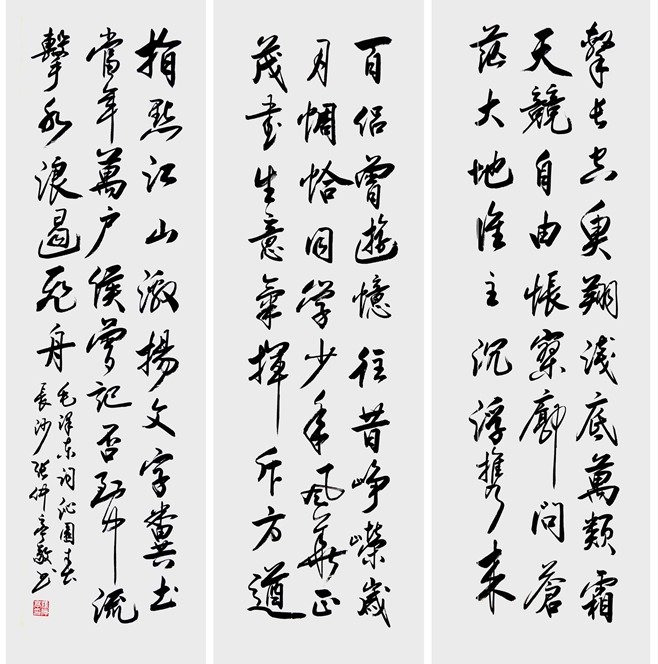 擊長空魚翔淺底萬類霜
天競自由悵寥廓問蒼
茫大地誰主沉浮攜來
百侶曾遊憶往昔崢嶸歲
月惆恰同學少年風華正
茂書生意氣揮斥方遒
指點江山激揚文字糞土
當年萬戶侯曾記否到中流
擊水浪遏飛舟
毛澤東詞沁園春
長沙張仲亭敬書